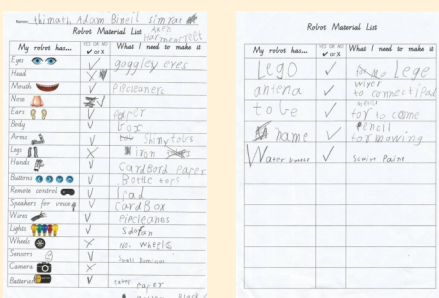 Name: thimati, Adam Bineil simrar
Axen
Robot Material List
Harmenpreet
My robot has...
YES OR NO
✓ or X
What I need to make it
Eyes ✓ goggley eyes
Head X
Mouth ✓ Pipecleaners
Nose ✓
Ears ✓ paper
Body ✓ box
Arms ✓ Shiny tobs
Legs X iron
Hands ✓ CardBord paper
Buttons ✓ Bottle tops
Remote control ✓ Ipad
Speakers for voice ✓ CardBox
Wires ✓ Pipecleanos
Lights ✓
Wheels X No. wheels
Sensors ✓
Camera X
Batteries ✓ paper
Robot Material List
My robot has...
YES OR NO
✓ or X
What I need to make it
Lego ✓ Lege
antena ✓ wirer
to connect ipad
tobe ✓
for to come
name ✓ Pencil
for mowing
Water ✓ Paint